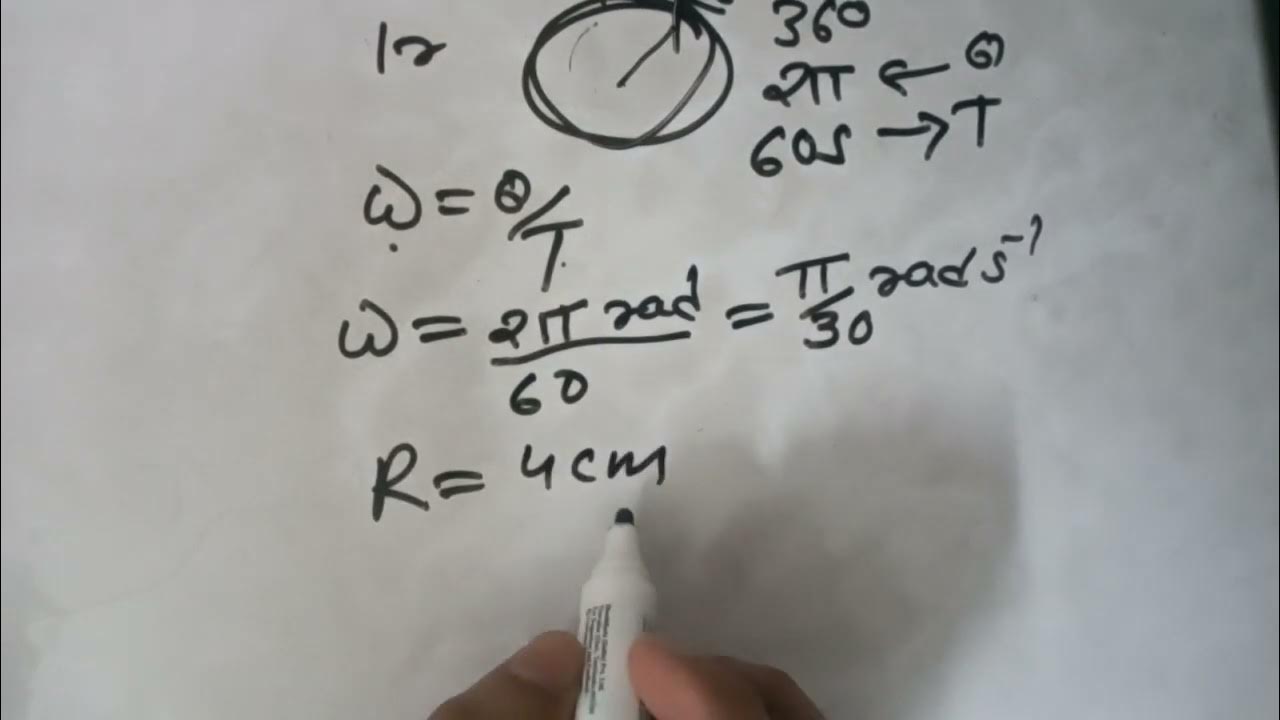 12
360
2π ← θ
60s → T
ω = θ/T
ω = 2π rad/60 = π/30 rad s⁻¹
R = 4cm